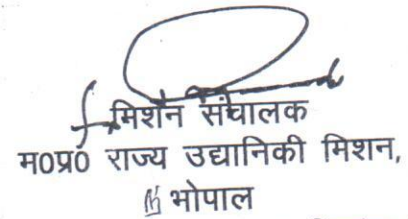 मिशन संचालक
म0प्र0 राज्य उद्यानिकी मिशन,
भोपाल